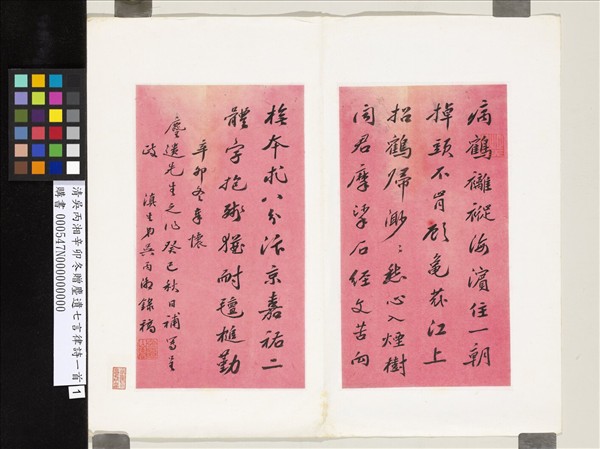 病鶴離褷海濱住一朝
掉頭不肯顧龜江上
招鶴歸渺々愁心入煙樹
聞君摩挲石經文苦向
本求八分汴京嘉祐二
體字抱殘猶耐氊椎勤
辛卯冬奉懷
塵遺先生之作癸巳秋日補寫呈
政 滇生弟吳丙湘錄稿
清吳丙湘辛卯冬贈塵遺七言律詩一首 1
購書 000547N000000000